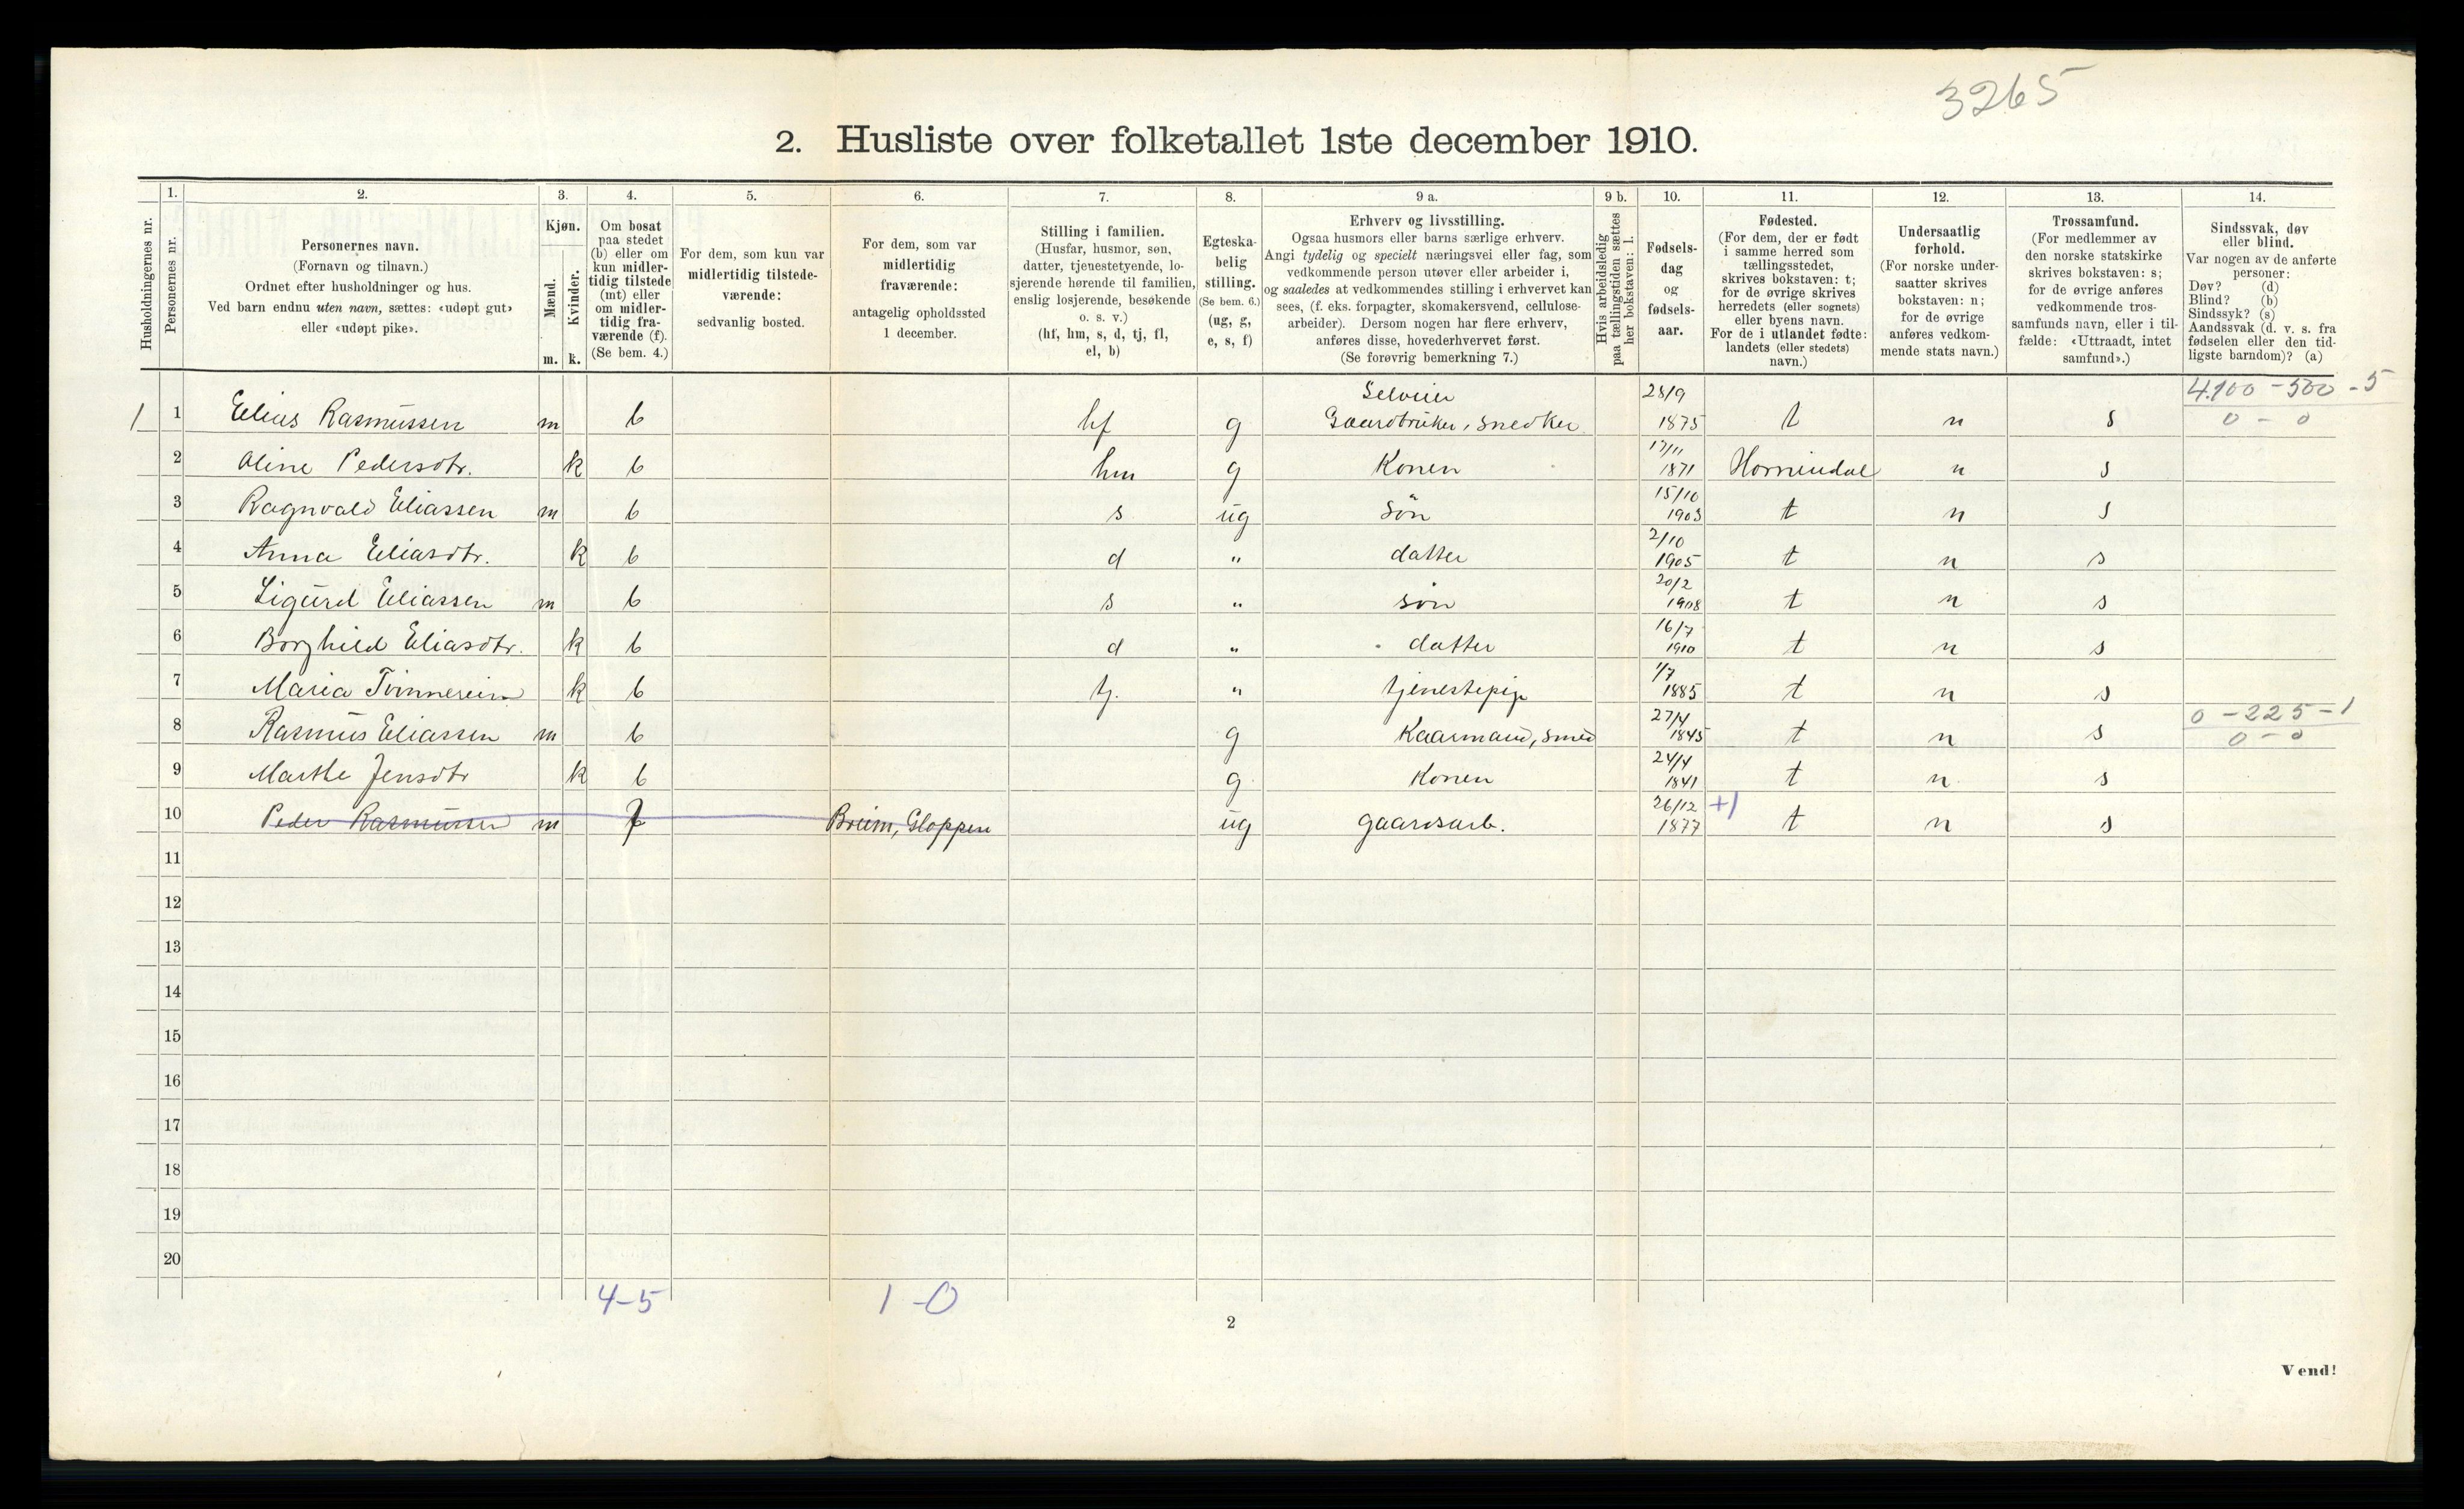 3265
2. Husliste over folketallet 1ste december 1910.
Husholdningernes nr.
1.
Personernes nr.
2.
Personernes navn.
(Fornavn og tilnavn.)
Ordnet efter husholdninger og hus.
Ved barn endnu uten navn, sættes: «udøpt gut»
eller «udøpt pike».
3.
Kjøn.
Mænd.
Kvinder.
m. k.
4.
Om bosat
paa stedet
(b) eller om
kun midler-
tidig tilstede
(mt) eller
om midler-
tidig fra-
værende (f).
(Se bem. 4.)
5.
For dem, som kun var
midlertidig tilstede-
værende:
sedvanlig bosted.
6.
For dem, som var
midlertidig
fraværende:
antagelig opholdssted
1 december.
7.
Stilling i familien.
(Husfar, husmor, søn,
datter, tjenestetyende, lo-
sjerende hørende til familien,
enslig losjerende, besøkende
o. s. v.)
(hf, hm, s, d, tj, fl,
el, b)
8.
Egteska-
belig
stilling.
(Se bem. 6.)
(ug, g,
e, s, f)
9 a.
Erhverv og livsstilling.
Ogsaa husmors eller barns særlige erhverv.
Angi tydelig og specielt næringsvei eller fag, som
vedkommende person utøver eller arbeider i,
og saaledes at vedkommendes stilling i erhvervet kan
sees, (f. eks. forpagter, skomakersvend, cellulose-
arbeider). Dersom nogen har flere erhverv,
anføres disse, hovederhvervet først.
(Se forøvrig bemerkning 7.)
9 b.
Hvis arbeidsledig
paa tællingstiden sættes
her bokstaven: l.
10.
Fødsels-
dag
og
fødsels-
aar.
11.
Fødested.
(For dem, der er født
i samme herred som
tællingsstedet,
skrives bokstaven: t;
for de øvrige skrives
herredets (eller sognets)
eller byens navn.
For de i utlandet fødte:
landets (eller stedets)
navn.)
12.
Undersaatlig
forhold.
(For norske under-
saatter skrives
bokstaven: n;
for de øvrige
anføres vedkom-
mende stats navn.)
13.
Trossamfund.
(For medlemmer av
den norske statskirke
skrives bokstaven: s;
for de øvrige anføres
vedkommende tros-
samfunds navn, eller i til-
fælde: «Uttraadt, intet
samfund».)
14.
Sindssvak, døv
eller blind.
Var nogen av de anførte
personer:
Døv? (d)
Blind? (b)
Sindssyk? (s)
Aandssvak (d. v. s. fra
fødselen eller den tid-
ligste barndom)? (a)
Selveier 28/9 4.100 - 500 - 5
1 1 Elias Rasmussen m b hf g Gaardbruker, snedker 1875 t n s 0 - 0
2 Oline Pedersdtr. k b hm g Konen 17/11 1871 Hornindal n s
3 Ragnvald Eliassen m b s ug søn 15/10 1903 t n s
4 Anna Eliasdtr. k b d " datter 2/10 1905 t n s
5 Sigurd Eliassen m b s " søn 20/2 1908 t n s
6 Borghild Eliasdtr. k b d " datter 16/7 1910 t n s
7 Maria Tvinnereim k b tj. " tjenestepige 1/7 1885 t n s
8 Rasmus Eliassen m b g Kaarmand, smed 27/4 1845 t n s 0 - 225 - 1
0 - 0
9 Marthe Jensdtr k b g Konen 24/4 1841 t n s
10 Peder Rasmussen m f Breim, Gloppen ug gaardsarb. 26/12 1877 +1 t n s
11
12
13
14
15
16
17
18
19
20
4-5 1-0
2
Vend!